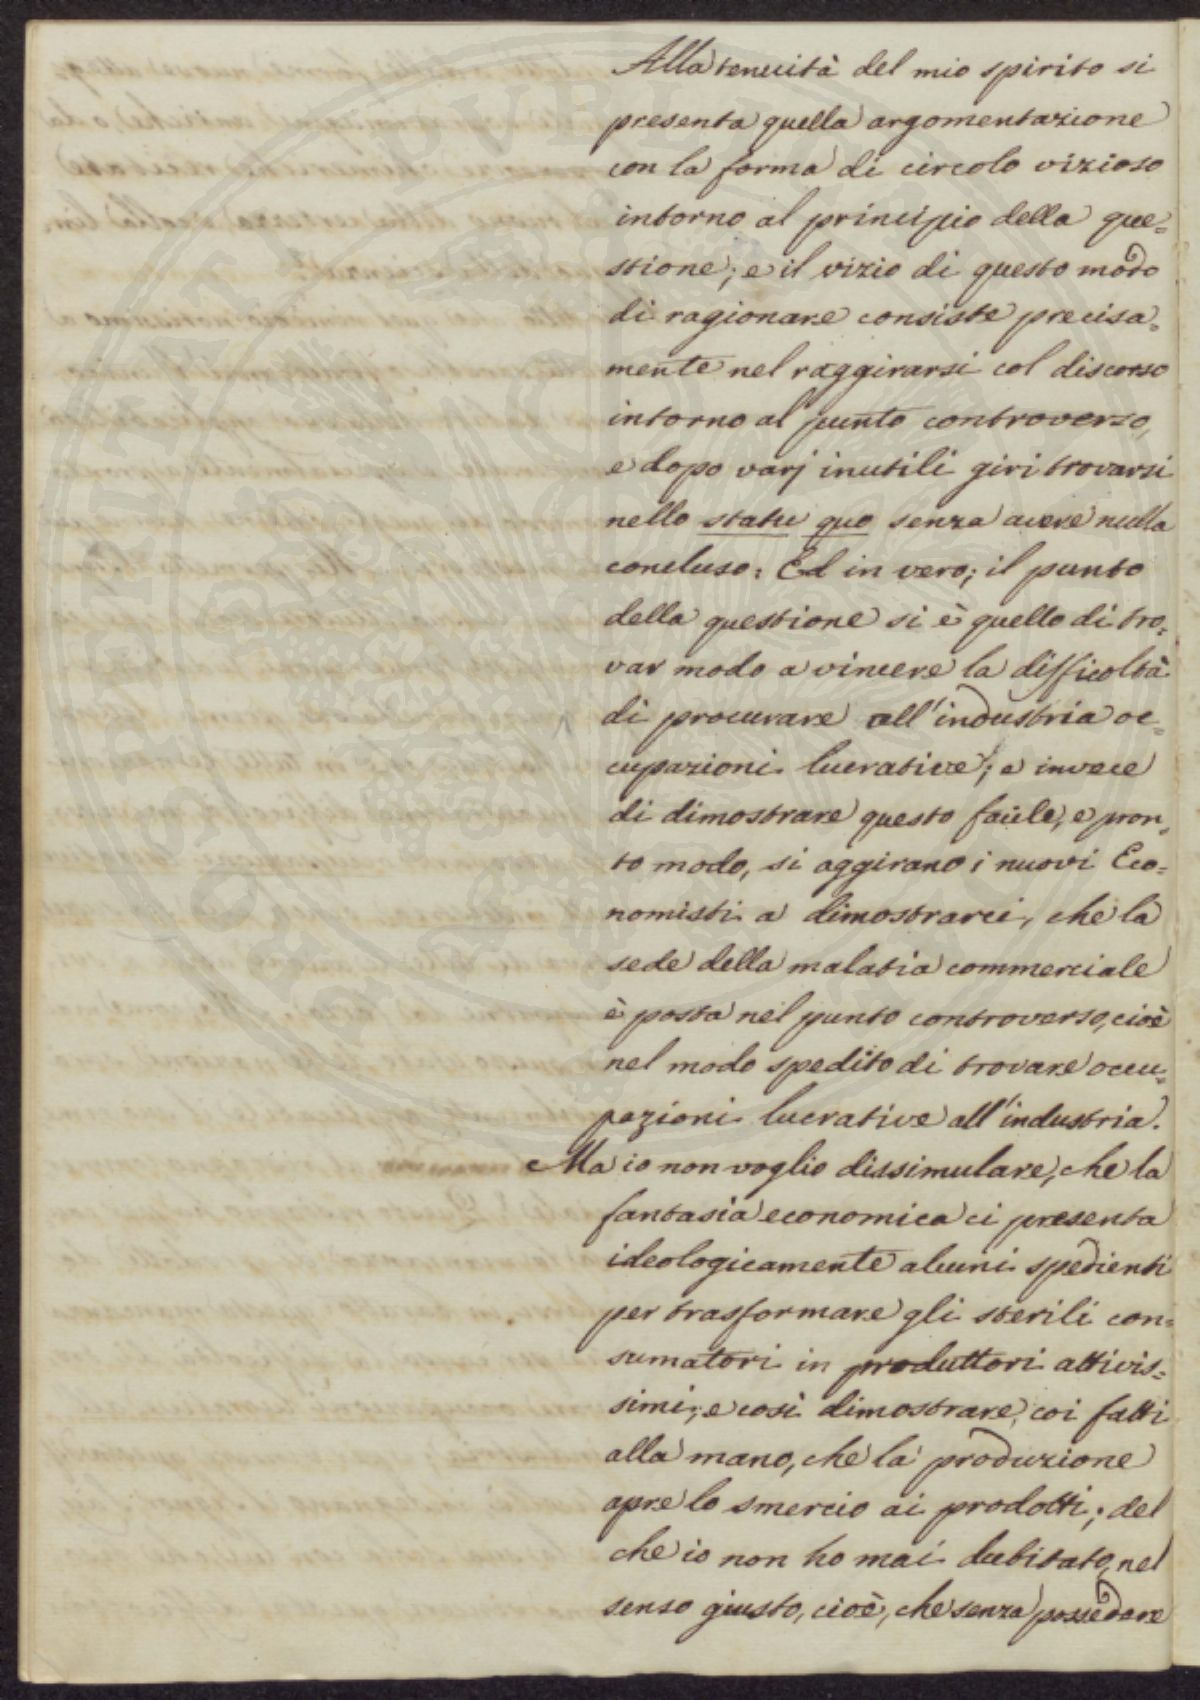 Alla tenuità del mio spirito si
presenta quella argomentazione
con la forma di circolo vizioso
intorno al principio della que=
stione; e il vizio di questo modo
di ragionare consiste precisa=
mente nel raggirarsi col discorso
intorno al punto controverso,
e dopo varj inutili giri trovarsi
nello statu quo senza avere nulla
concluso: Ed in vero; il punto
della questione si è quello di tro=
var modo a vincere la difficoltà
di procurare all'industria oc=
cupazioni lucrative; e invece
di dimostrare questo facile, e pron=
to modo, si aggirano i nuovi Eco=
nomisti a dimostrarci, che la
sede della malatia commerciale
è posta nel punto controverso, cioè
nel modo spedito di trovare occu=
pazioni lucrative all'industria.
Ma io non voglio dissimulare, che la
fantasia economica ci presenta
ideologicamente alcuni spedienti
per trasformare gli sterili con=
sumatori in produttori attivis=
simi; e così dimostrare, coi fatti
alla mano, che la produzione
apre lo smercio ai prodotti; del
che io non ho mai dubitato, nel
senso giusto, cioè, che senza possedere